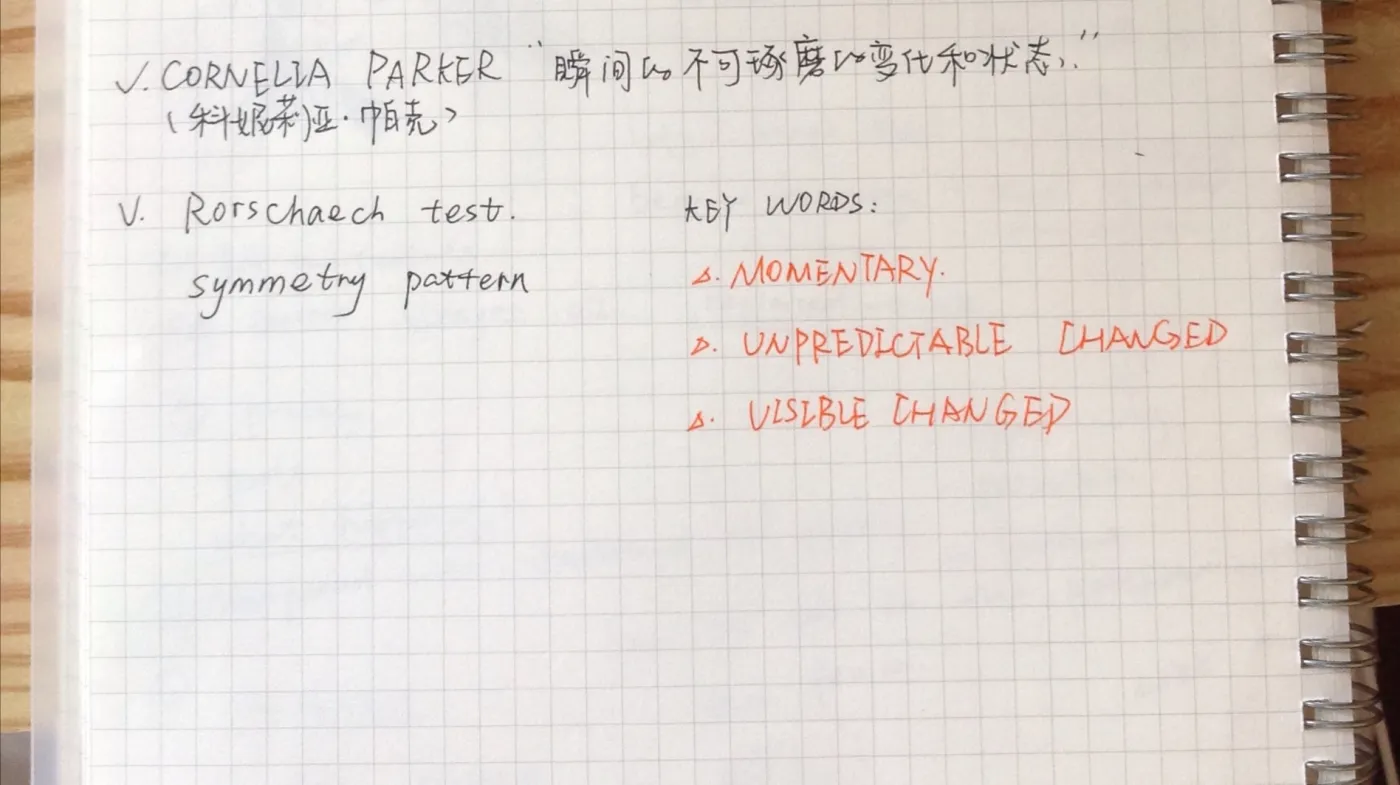 ✓. CORNELIA PARKER "瞬间的不可琢磨的变化和状态."
(科妮莉亚·帕克)
V. Rorschaech test.
symmetry pattern
KEY WORDS:
△. MOMENTARY.
△. UNPREDICTABLE CHANGED
△. VISIBLE CHANGED